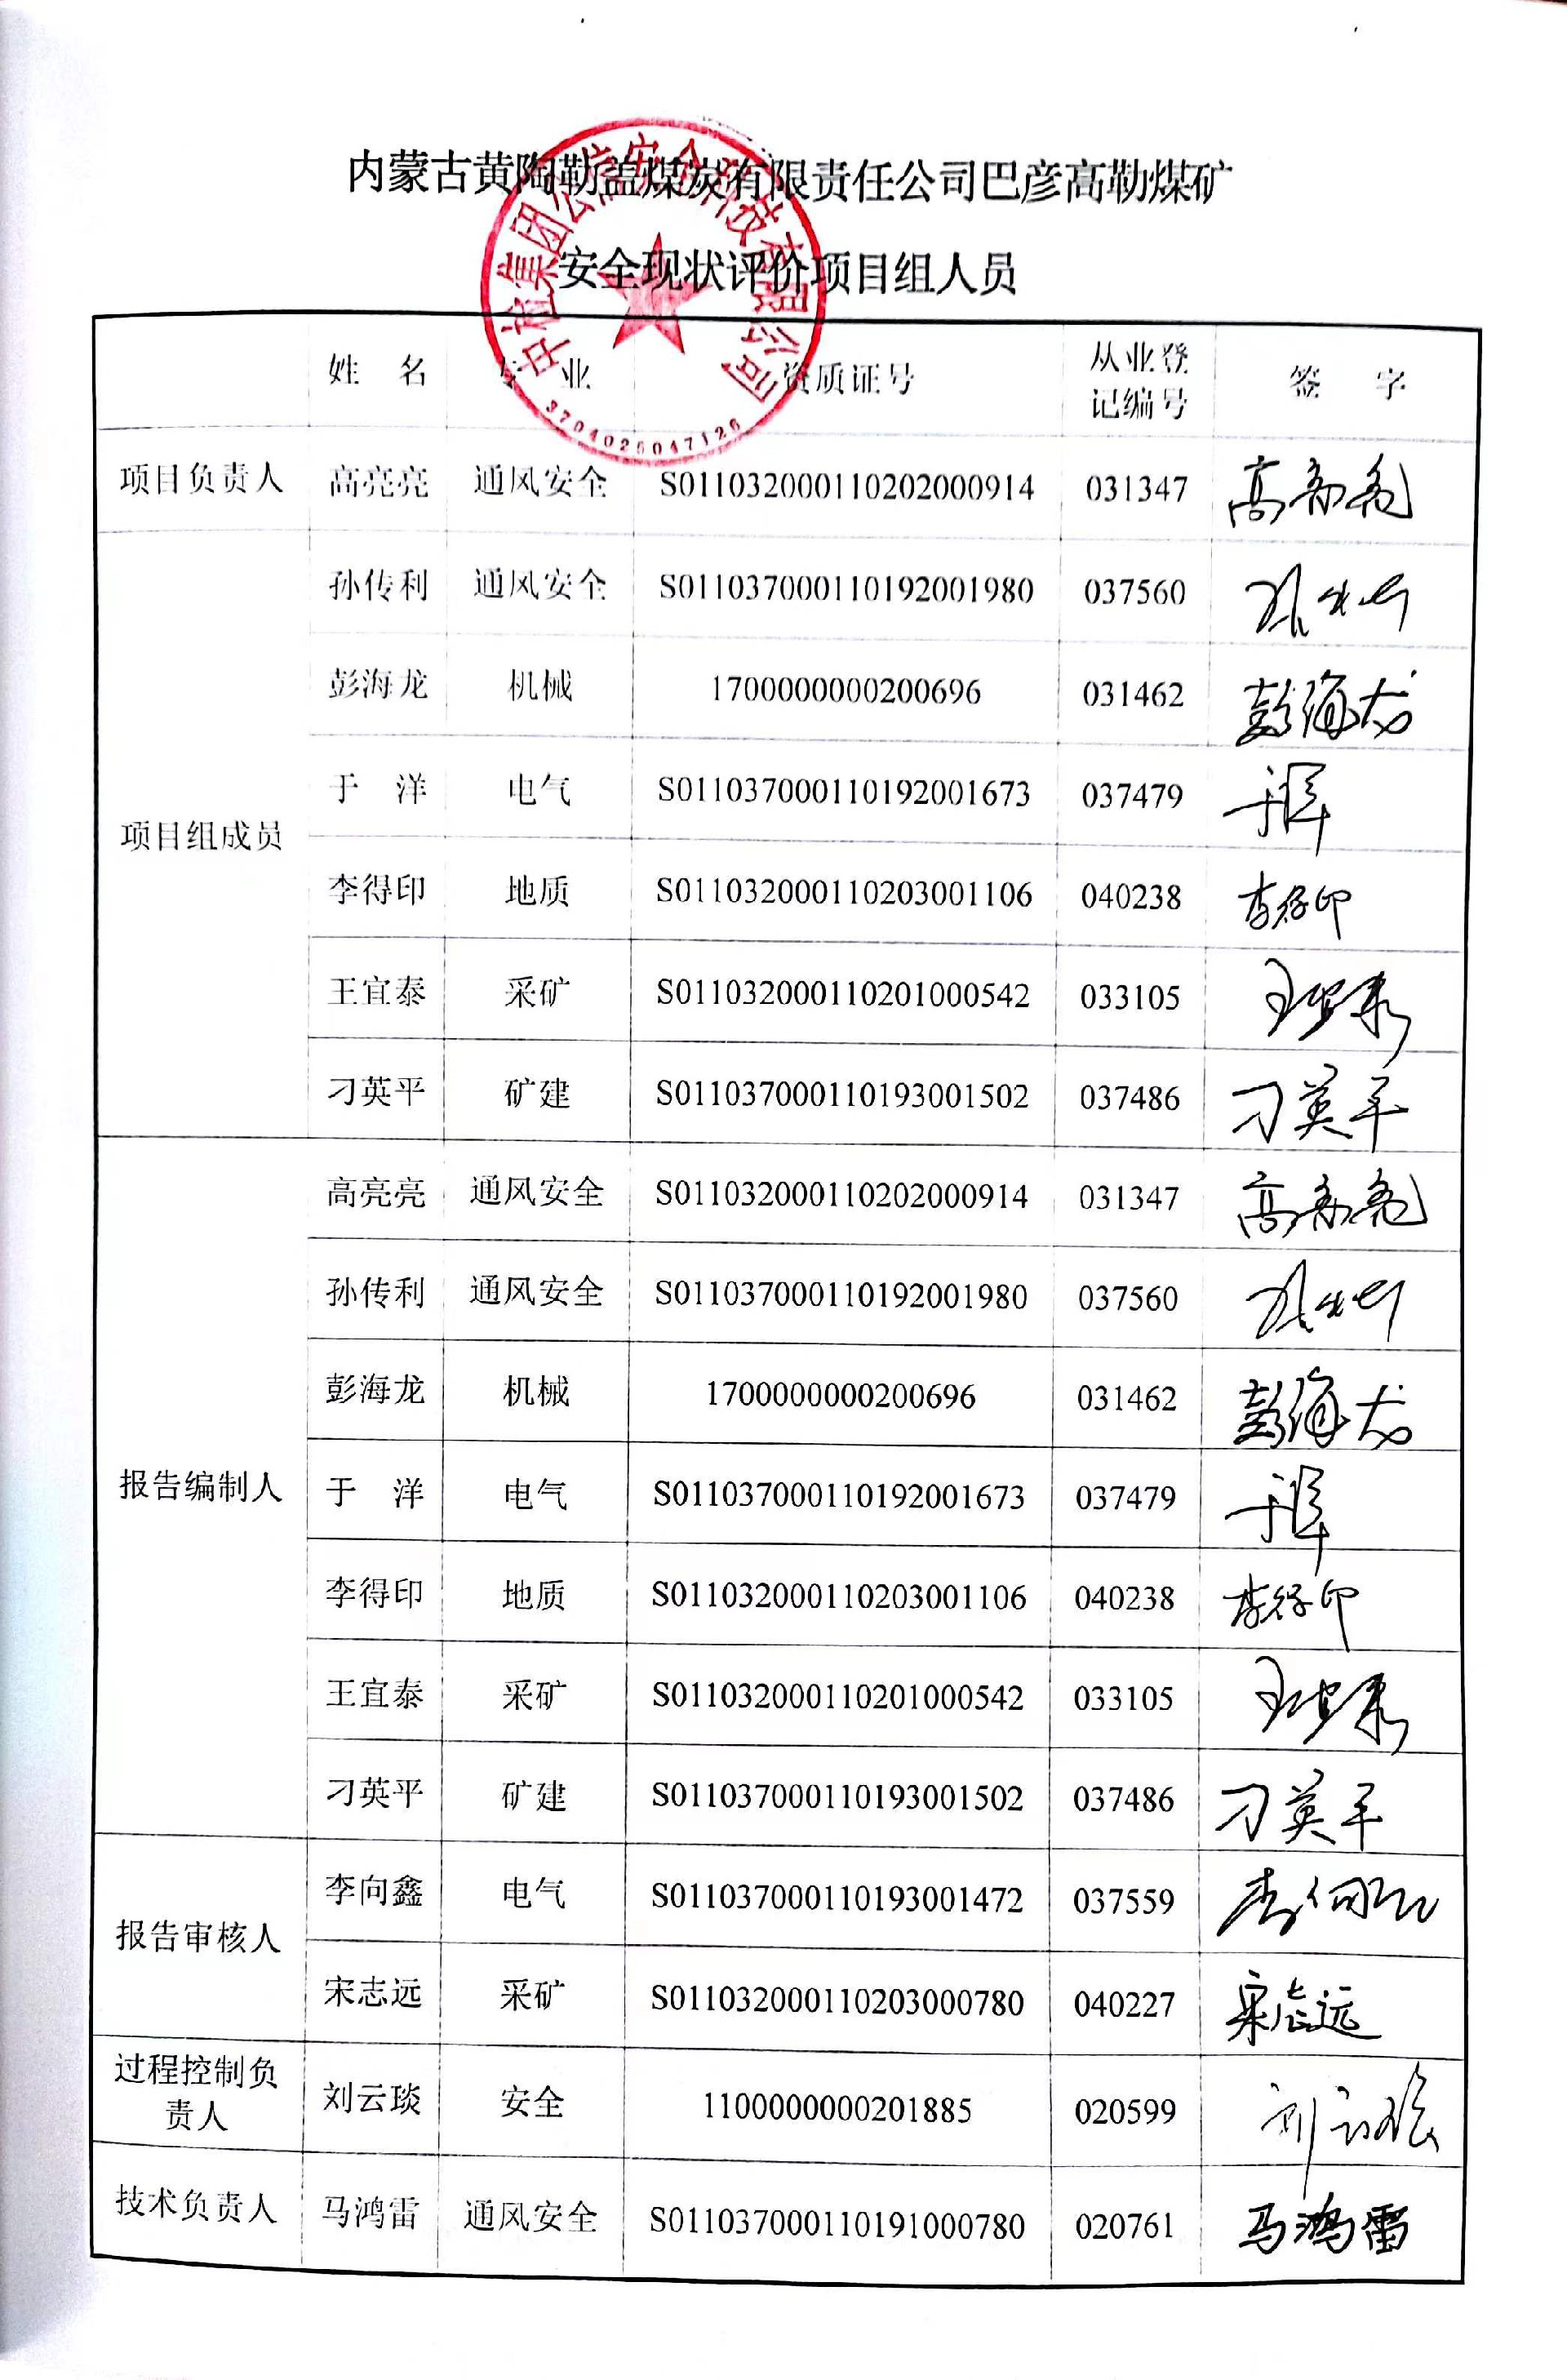 内蒙古黄陶勒盖煤炭有限责任公司巴彦高勒煤矿
安全现状评价项目组人员
中检集团公信安全科技有限公司
3704026047126
姓 名 专 业 资质证号 从业登记编号 签 字
项目负责人 高亮亮 通风安全 S011032000110202000914 031347 高亮亮
项目组成员
孙传利 通风安全 S011037000110192001980 037560 孙传利
彭海龙 机械 1700000000200696 031462 彭海龙
于 洋 电气 S011037000110192001673 037479 于洋
李得印 地质 S011032000110203001106 040238 李得印
王宜泰 采矿 S011032000110201000542 033105 王宜泰
刁英平 矿建 S011037000110193001502 037486 刁英平
报告编制人
高亮亮 通风安全 S011032000110202000914 031347 高亮亮
孙传利 通风安全 S011037000110192001980 037560 孙传利
彭海龙 机械 1700000000200696 031462 彭海龙
于 洋 电气 S011037000110192001673 037479 于洋
李得印 地质 S011032000110203001106 040238 李得印
王宜泰 采矿 S011032000110201000542 033105 王宜泰
刁英平 矿建 S011037000110193001502 037486 刁英平
报告审核人
李向鑫 电气 S011037000110193001472 037559 李向鑫
宋志远 采矿 S011032000110203000780 040227 宋志远
过程控制负责人 刘云琰 安全 1100000000201885 020599 刘云琰
技术负责人 马鸿雷 通风安全 S011037000110191000780 020761 马鸿雷